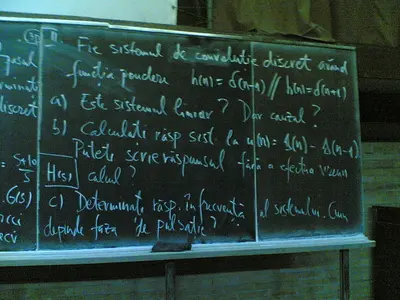 II. Fie sistemul de convoluție discret având
funcția pondere h(n) = δ(n-1) // h(n) = δ(n+1)
a) Este sistemul liniar? Dar cauzal?
b) Calculați răsp. sist. la u(n) = 1(n) - 1(n-1)
Puteți scrie răspunsul fără a efectua vreun
calcul?
c) Determinați răsp. în frecvență al sistemului. Cum
depinde faza de pulsație?
H(s)
G(s)